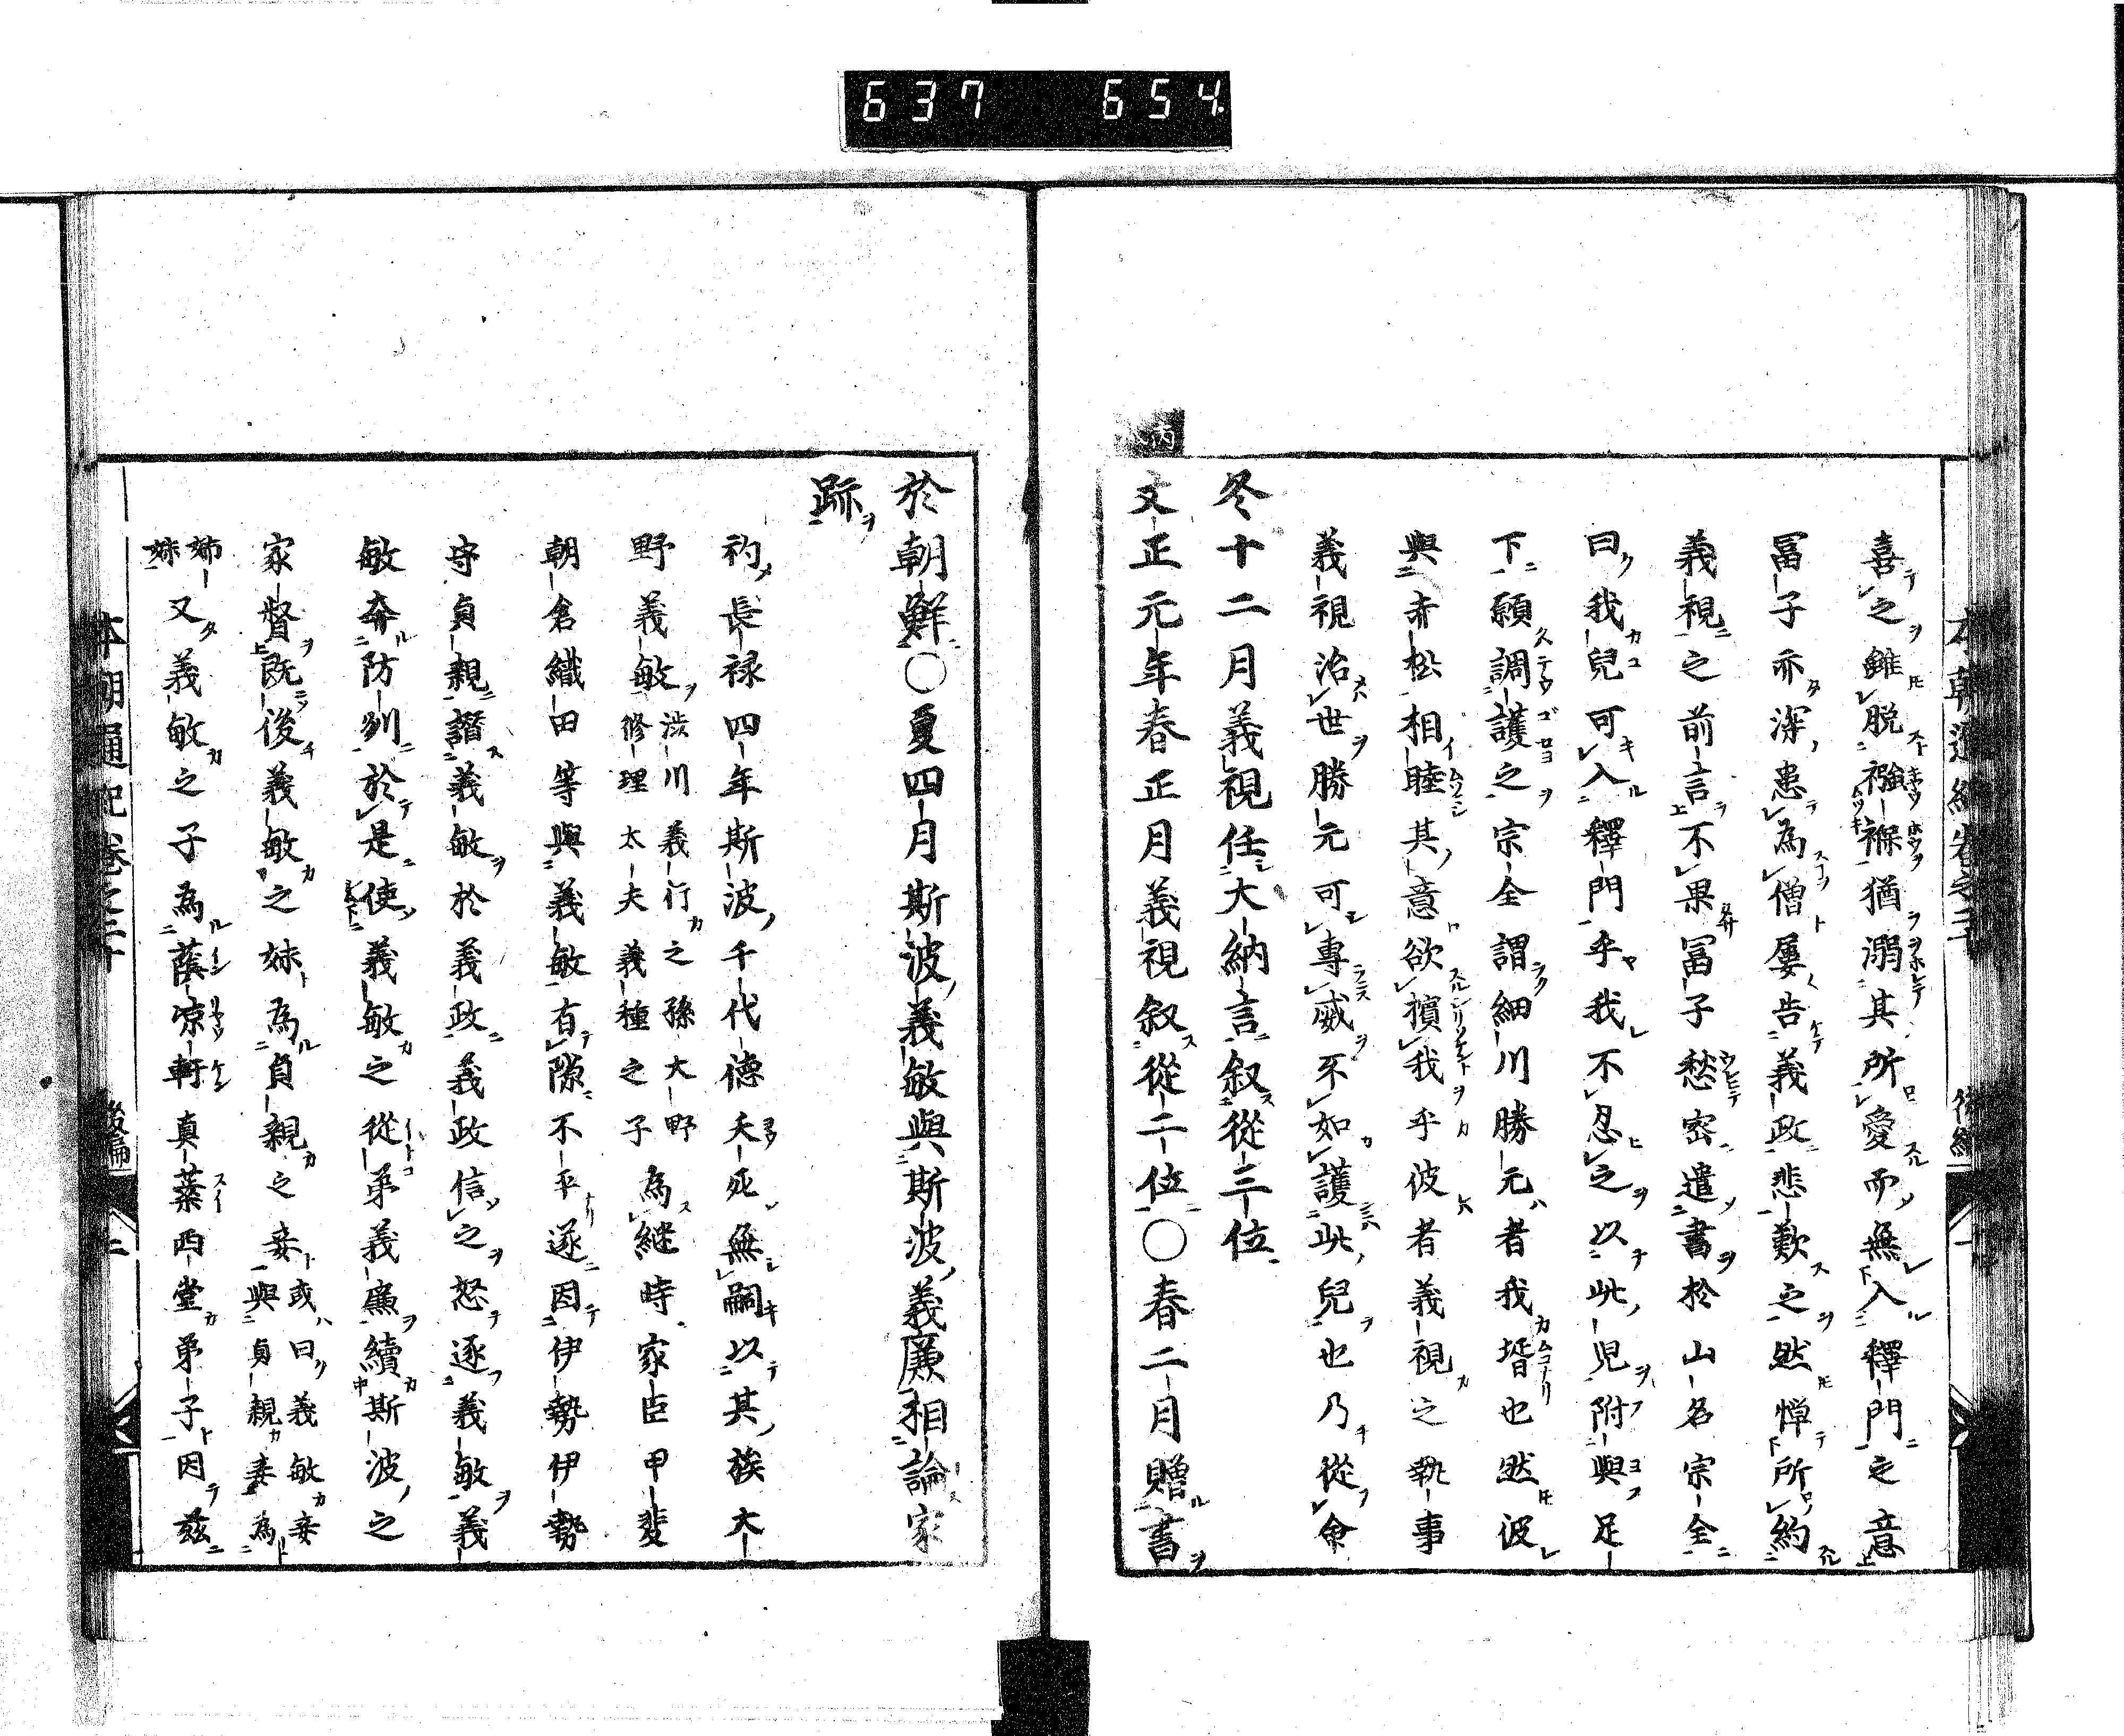 637 654
喜之雖脱襁褓猶溺其所愛而無入釋門之意
冨子亦深患為僧屢告義政悲歎之然憚所約
義視之前言不果冨子愁密遣書於山名宗全
曰我兒可入釋門乎我不忍之以此兒附與足
下願調護之宗全謂細川勝元者我壻也然彼
與赤松相睦其意欲擯我乎彼者義視之執事
義視治世勝元可專威不如護此兒也乃從命
冬十二月義視任大納言叙從三位
丙
文正元年春正月義視叙從二位○春二月贈書
於朝鮮○夏四月斯波義敏與斯波義廉相論家
跡
初長禄四年斯波千代德夭死無嗣以其族大
野義敏渋川義行之孫大野
修理太夫義種之子為継時家臣甲斐
朝倉織田等與義敏有隙不平遂因伊勢伊勢
守貞親譖義敏於義政義政信之怒逐義敏義
敏奔防列於是使義敏之從弟義廉續斯波之
家督既後義敏之妹為貞親之妾或曰義敏妾
與貞親妻為
姉
妹又義敏之子為蔭凉軒真蘂西堂弟子因茲
本朝通紀卷之二十 後編 二